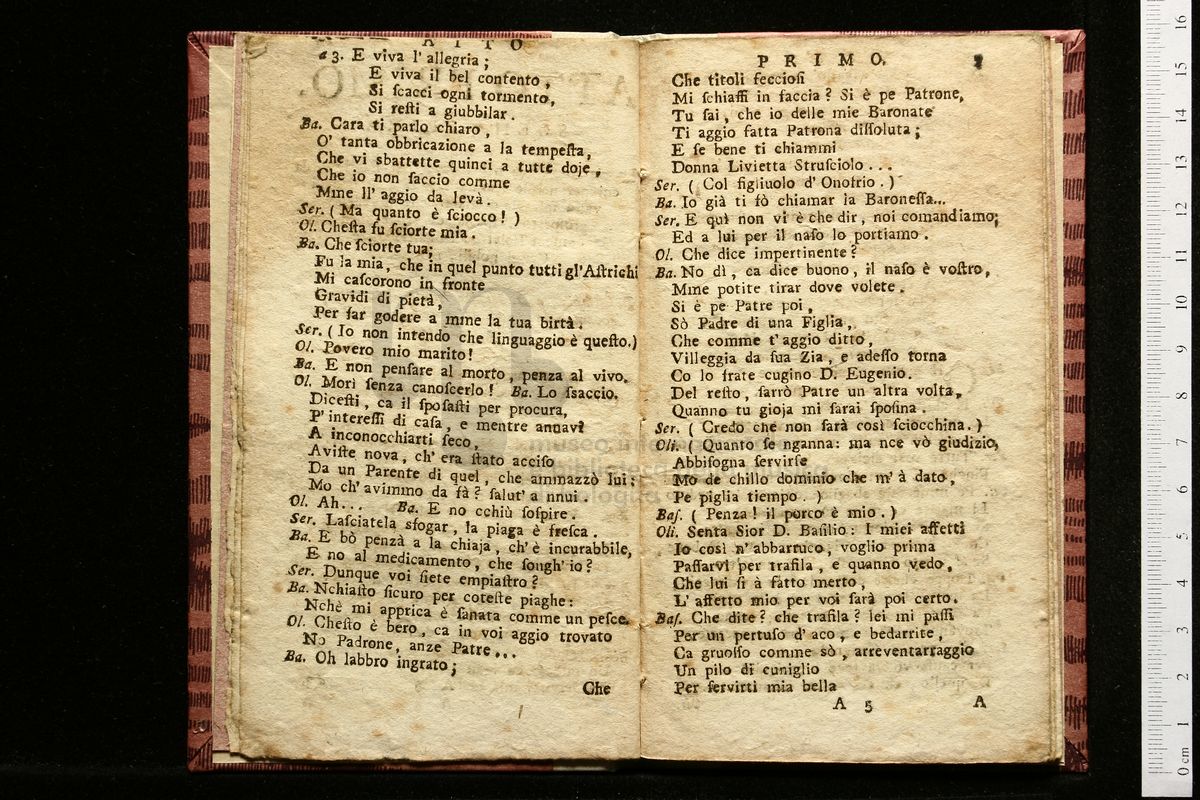 ATTO
a 3. E viva l' allegria;
E viva il bel contento,
Si ſcacci ogni tormento,
Si reſti a giubbilar.
Ba. Cara ti parlo chiaro,
O' tanta obbricazione a la tempeſta,
Che vi sbattette quinci a tutte doje,
Che io non ſaccio comme
Mme ll' aggio da levà.
Ser. (Ma quanto è ſciocco!)
Ol. Cheſta fu ſciorte mia.
Ba. Che ſciorte tua;
Fu la mia, che in quel punto tutti gl'Aſtrichi
Mi caſcorono in fronte
Gravidi di pietà,
Per far godere a mme la tua birtà.
Ser. (Io non intendo che linguaggio è queſto.)
Ol. Povero mio marito!
Ba. E non penſare al morto, penza al vivo.
Ol. Morì ſenza canoſcerlo! Ba. Lo ſsaccio.
Diceſti, ca il ſpoſaſti per procura,
P' intereſſi di caſa, e mentre annavi
A inconocchiarti ſeco,
Aviſte nova, ch' era ſtato acciſo
Da un Parente di quel, che ammazzò lui:
Mo ch' avimmo da fà? ſalut' a nnui.
Ol. Ah... Ba. E no cchiù ſoſpire.
Ser. Laſciatela sfogar, la piaga è freſca.
Ba. E bò penzà a la chiaja, ch' è incurabbile,
E no al medicamento, che ſongh' io?
Ser. Dunque voi ſiete empiaſtro?
Ba. Nchiaſto ſicuro per coteſte piaghe:
Nchè mi apprica è ſanata comme un peſce.
Ol. Cheſto è bero, ca in voi aggio trovato
No Padrone, anze Patre...
Ba. Oh labbro ingrato;
Che
PRIMO.
Che titoli feccioſi
Mi ſchiaffi in faccia? Si è pe Patrone,
Tu ſai, che io delle mie Baronate
Ti aggio fatta Patrona diſſoluta;
E ſe bene ti chiammi
Donna Livietta Struſciolo...
Ser. (Col figliuolo d' Onofrio.)
Ba. Io già ti fò chiamar la Baroneſſa...
Ser. E quì non vi è che dir, noi comandiamo;
Ed a lui per il naſo lo portiamo.
Ol. Che dice impertinente?
Ba. No dì, ca dice buono, il naſo è voſtro,
Mme potite tirar dove volete.
Si è pe Patre poi,
Sò Padre di una Figlia,
Che comme t' aggio ditto,
Villeggia da ſua Zia, e adeſſo torna
Co lo frate cugino D. Eugenio.
Del reſto, ſarrò Patre un altra volta,
Quanno tu gioja mi ſarai ſpoſina.
Ser. (Credo che non ſarà così ſciocchina.)
Oli. (Quanto ſe nganna: ma nce vò giudizio,
Abbiſogna ſervirſe
Mo de chillo dominio che m' à dato,
Pe piglia tiempo.)
Baſ. (Penza! il porco è mio.)
Oli. Senta Sior D. Baſilio: I miei affetti
Io così n' abbarruco, voglio prima
Paſſarvi per trafila, e quanno vedo,
Che lui ſi à fatto merto,
L' affetto mio per voi ſarà poi certo.
Baſ. Che dite? che trafila? lei mi paſſi
Per un pertuſo d' aco, e bedarrite,
Ca gruoſſo comme sò, arreventarraggio
Un pilo di cuniglio
Per ſervirti mia bella
A 5 A